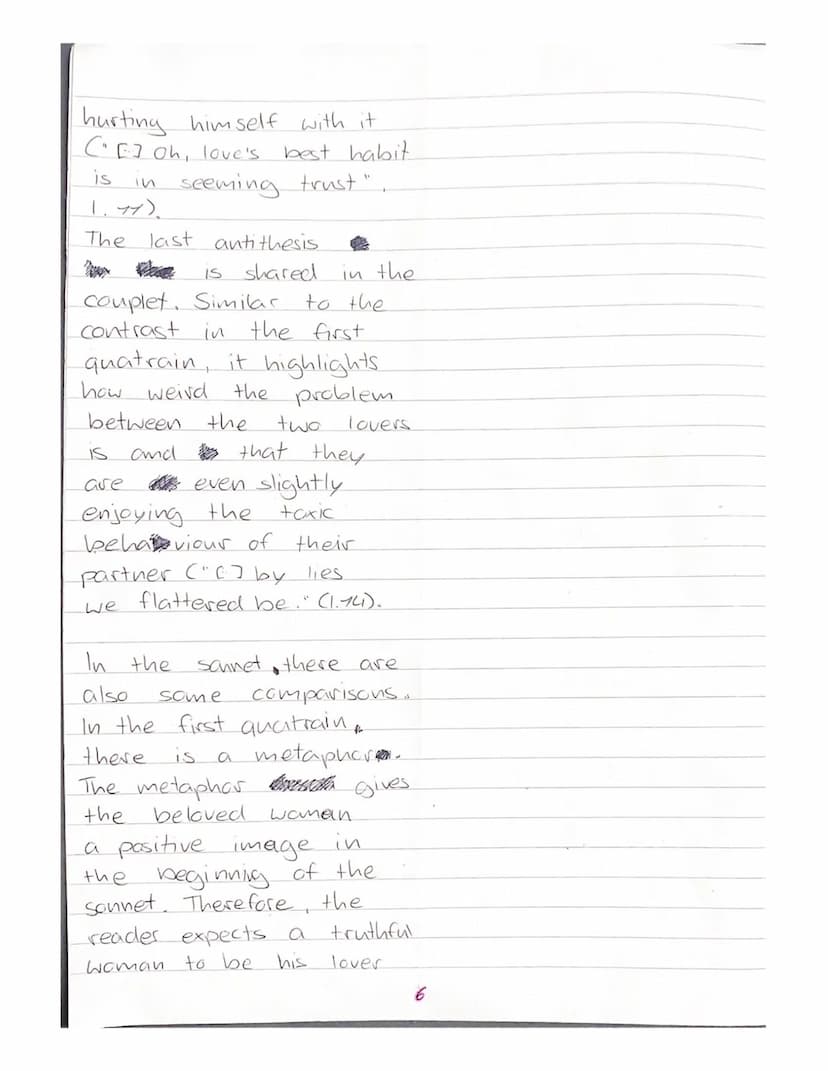 hurting himself with it
("[.] Oh, love's best habit
is in seeming trust",
l. 11).
The last antithesis
is shared in the
couplet. Similar to the
contrast in the first
quatrain, it highlights
how weird the problem
between the two lovers
is and that they
are even slightly
enjoying the toxic
behaviour of their
partner ("[.] by lies
we flattered be." (l.14).
In the sonnet, there are
also some comparisons.
In the first quatrain,
there is a metaphor.
The metaphor gives
the beloved woman
a positive image in
the beginning of the
sonnet. Therefore, the
reader expects a truthful
woman to be his lover
6